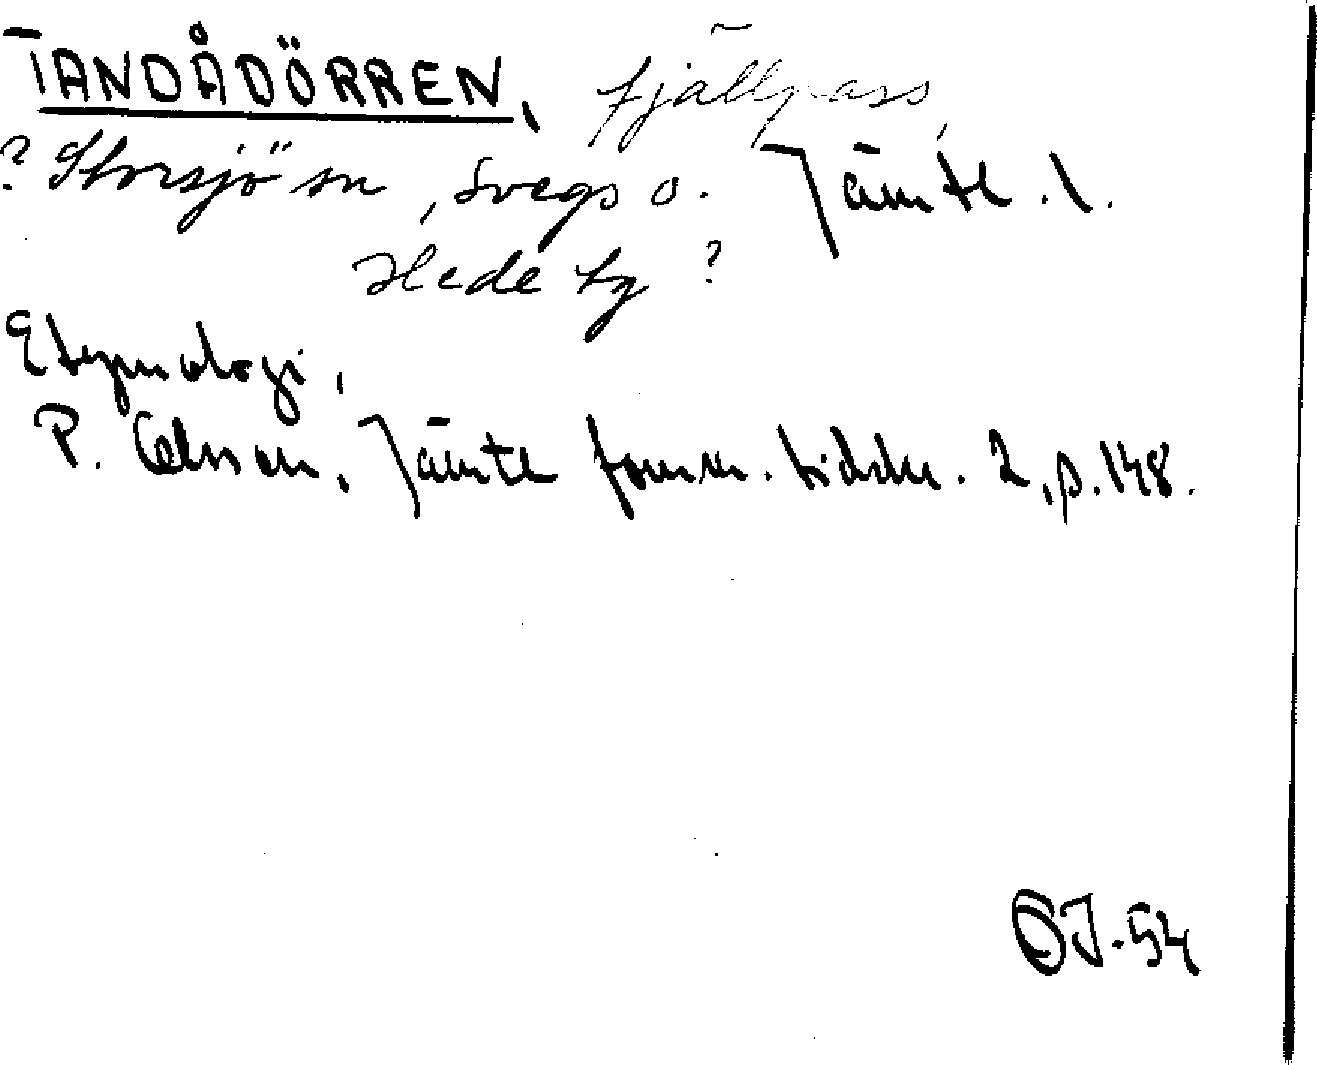 TANDÅDÖRREN, fjällpass,
? Storsjö sn, Svegs o. Jämtl. l.
Hede tg ?
Etymologi,
P. Olsson, Jämtl fornm. tidskr. 2, p. 148.
OJ-54